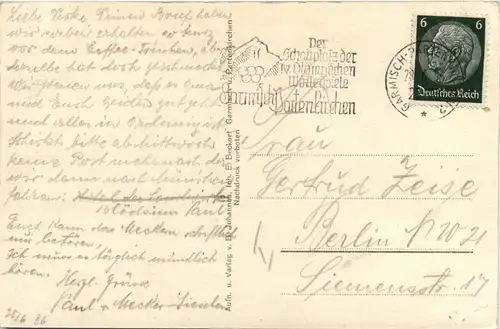 Liebe Deine Briefe haben
wir soeben erhalten so kurz
vor dem Kaffee-Trinken, aber
derselbe hat doch geschmeckt
Wir freuen uns, dass es
Euch beiden gut geht
und alles in Ordnung ist.
Schickt bitte ab Mittwoch
keine Post mehr nach
wir dann nach München
fahren.
Blödsinn Paul
Euch kann das Meckern
Ich muss es täglich mündlich
hören. Herzl. Grüsse
Paul
26/6 36
Aufn. u. Verlag v. B. Johannes, Inh. E. Beckert, Garmisch u. Partenkirchen
Nachdruck verboten
Der
Schauplatz der
IV. Olympischen
Winterspiele
Garmisch
Partenkirchen
GARMISCH-
6 6
Deutsches Reich
Frau
Gertrud Zeise
Berlin NW 21
Siemensstr. 17